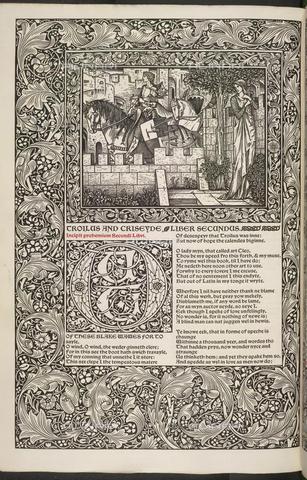 TROILUS AND CRISEYDE. LIBER SECUNDUS.
Incipit prohemium Secundi Libri.
OUT
OF THESE BLAKE WAWES FOR TO
sayle,
O wind, O wind, the weder ginneth clere;
For in this see the boot hath swich travayle,
Of my conning that unnethe I it stere:
This see clepe I the tempestous matere
Of desespeyr that Troilus was inne:
But now of hope the calendes biginne.
O lady myn, that called art Cleo,
Thou be my speed fro this forth, & my muse,
To ryme wel this book, til I have do;
Me nedeth here noon other art to use.
Forwhy to every lovere I me excuse,
That of no sentement I this endyte,
But out of Latin in my tonge it wryte.
Wherfore I nil have neither thank ne blame
Of al this werk, but pray you mekely,
Disblameth me, if any word be lame,
For as myn auctor seyde, so sey I.
Eek though I speke of love unfelingly,
No wonder is, for it nothing of newe is;
A blind man can nat juggen wel in hewis.
Ye knowe eek, that in forme of speche is
chaunge
Withinne a thousand yeer, and wordes tho
That hadden prys, now wonder nyce and
straunge
Us thinketh hem; and yet they spake hem so,
And spedde as wel in love as men now do;